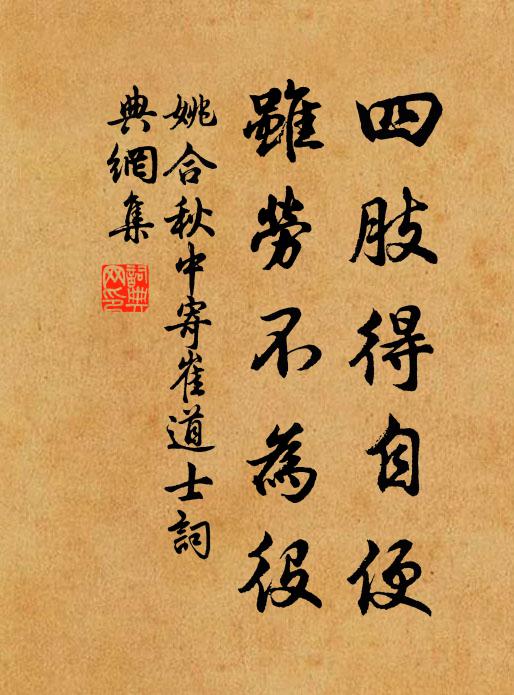 四肢得自便
雖勞不為役
姚合秋中寄崔道士詞
典網集
詞典
网印